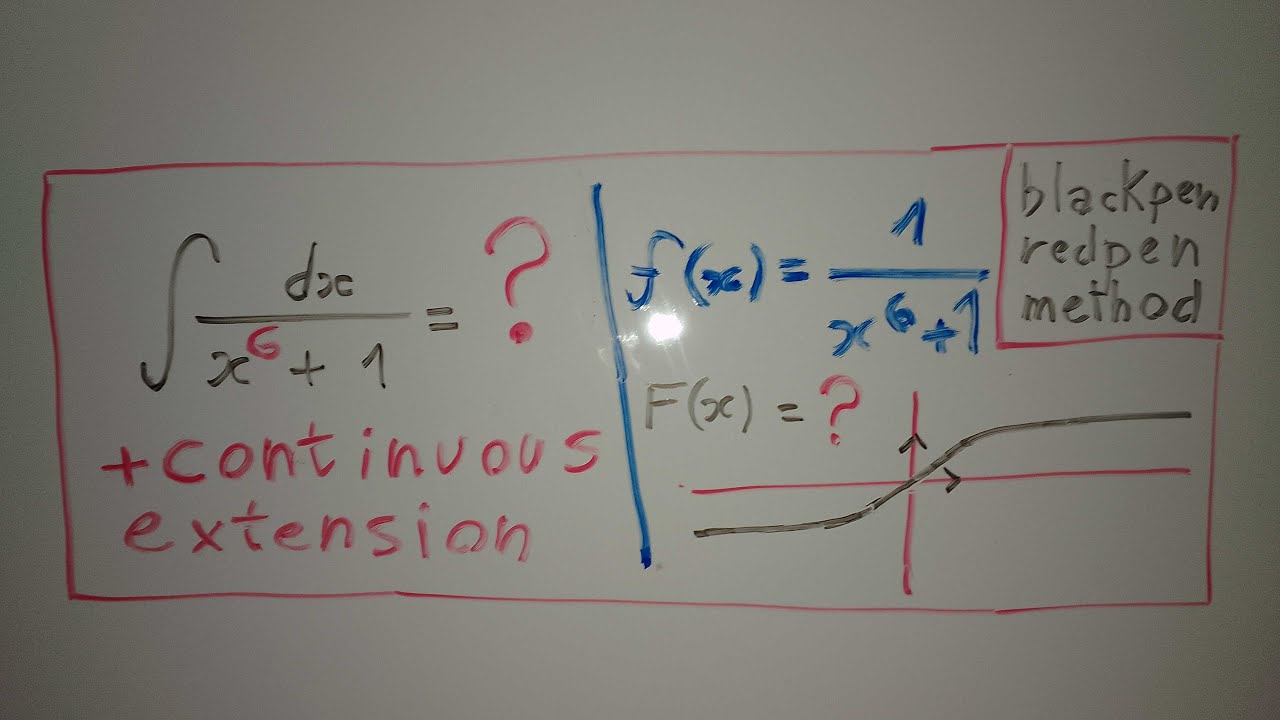 ∫ dx / (x⁶ + 1) = ?
+continuous
extension
f(x) = 1 / (x⁶ + 1)
F(x) = ?
blackpen
redpen
method